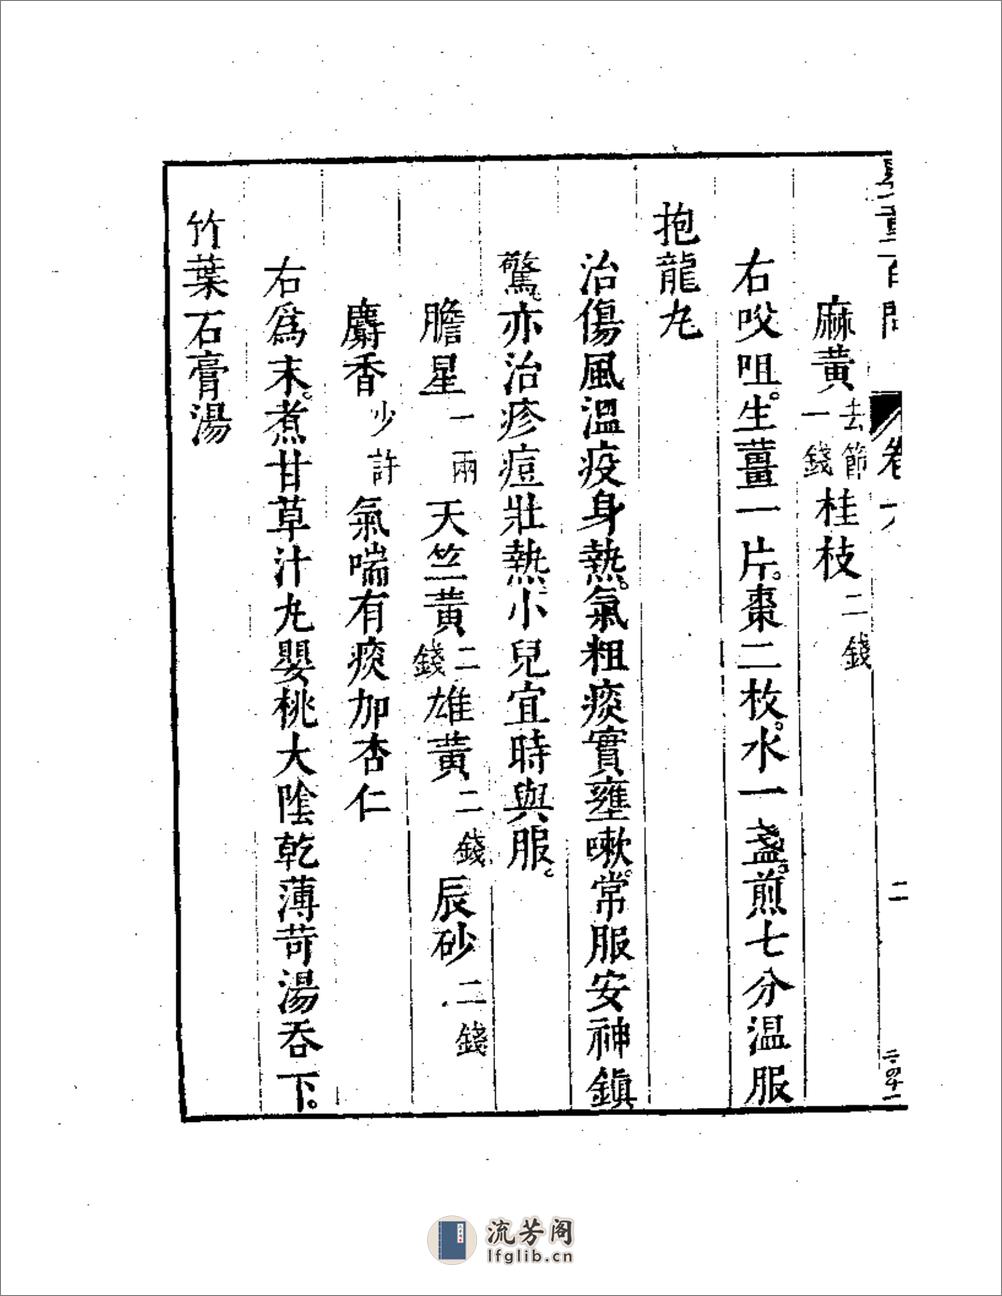 嬰童百問 卷六 二 二四一
麻黃去節一錢 桂枝二錢
右㕮咀。生薑一片。棗二枚。水一盞。煎七分温服
抱龍丸
治傷風溫疫身熱。氣粗痰實壅嗽。常服安神鎮
驚。亦治疹痘壯熱。小兒宜時與服。
膽星一兩 天竺黃二錢 雄黃二錢 辰砂二錢
麝香少許 氣喘有痰加杏仁
右爲末。煮甘草汁丸嬰桃大陰乾薄苛湯吞下。
竹葉石膏湯
流芳阁
lfglib.cn